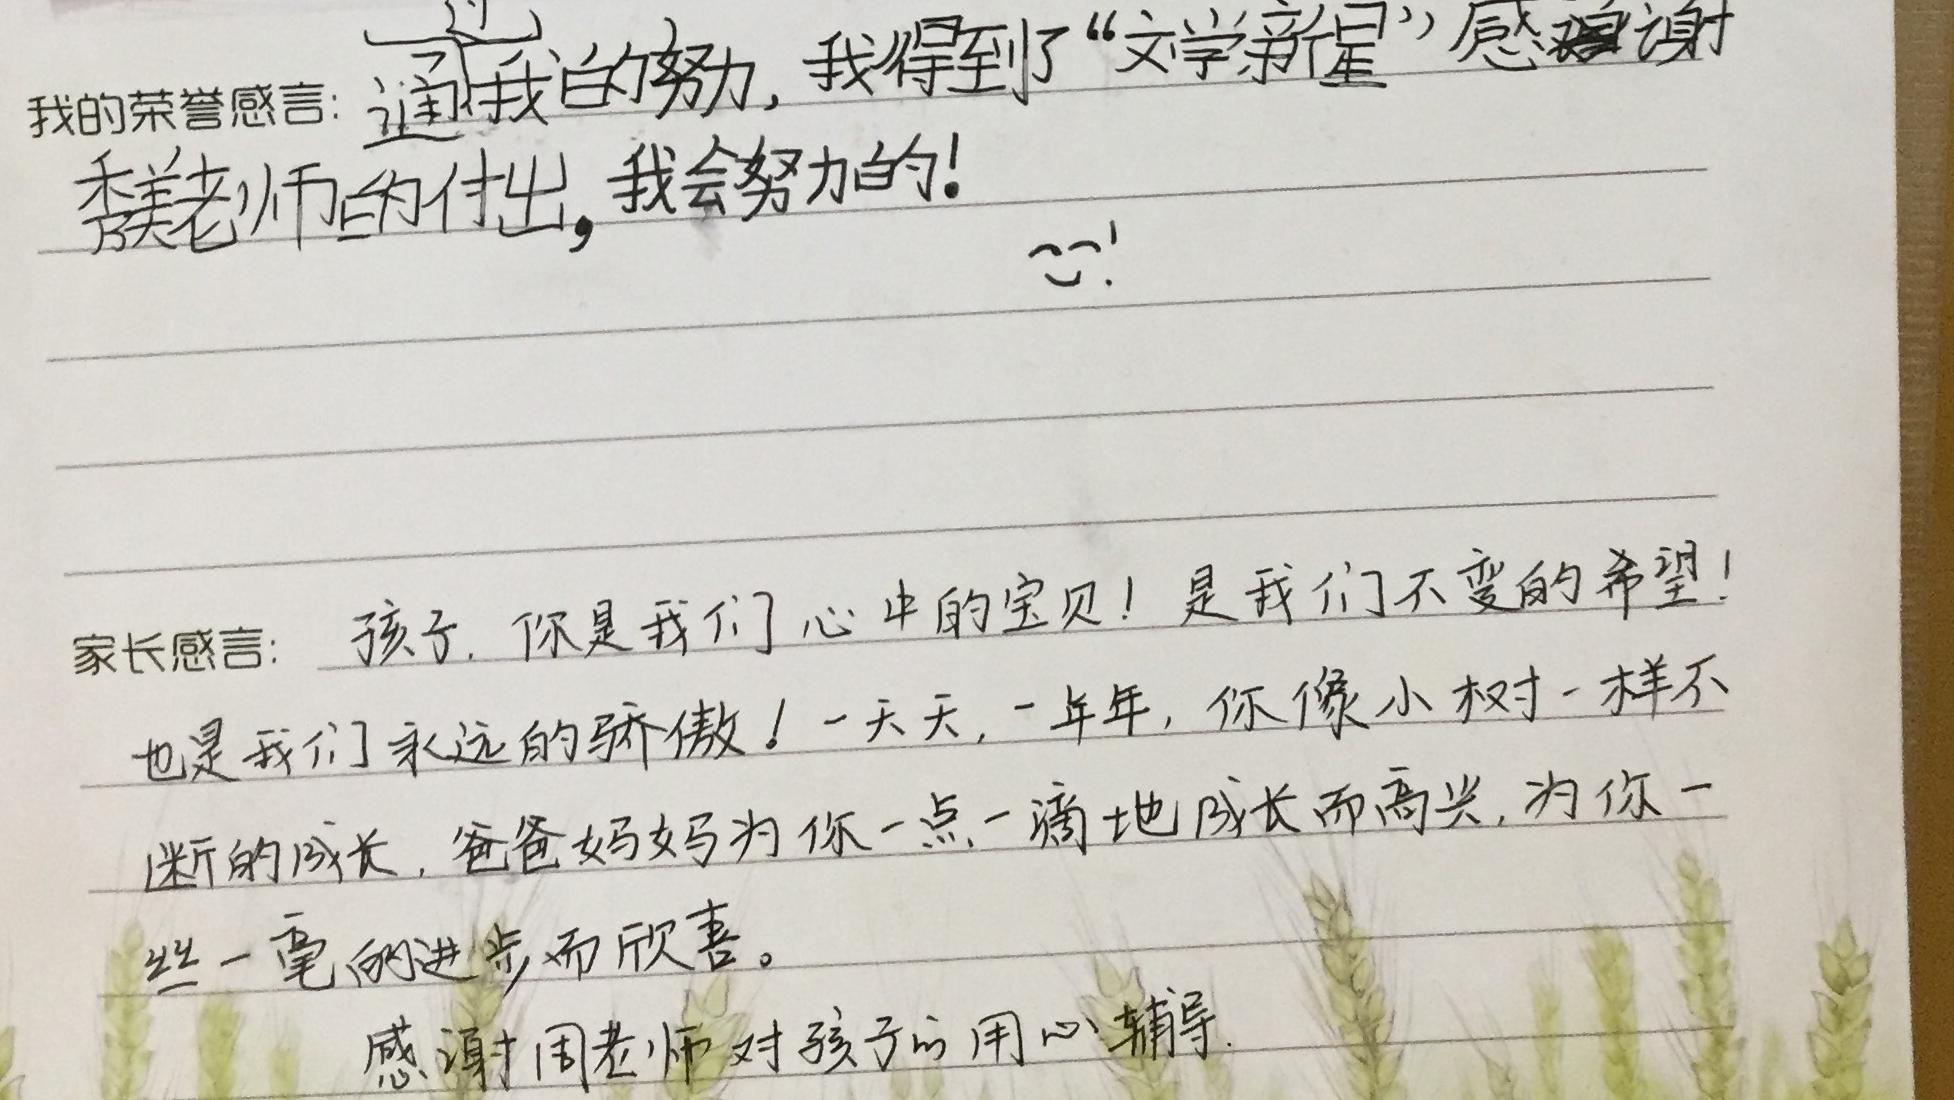 我的荣誉感言：通过我的努力，我得到了“文学新星”感谢
秀美老师的付出，我会努力的！
家长感言：孩子，你是我们心中的宝贝！是我们不变的希望！
也是我们永远的骄傲！一天天，一年年，你像小树一样不
断的成长，爸爸妈妈为你一点一滴地成长而高兴，为你一
丝一毫的进步而欣喜。
感谢周老师对孩子的用心辅导.